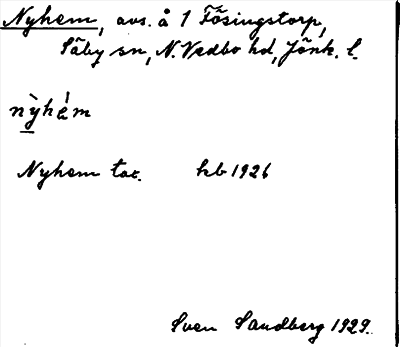 Nyhem, avs. å 1 Fösingstorp,
Säby sn, N. Vedbo hd, Jönk. l.
nỳhém
Nyhem tac. hb 1926
Sven Sandberg 1929.